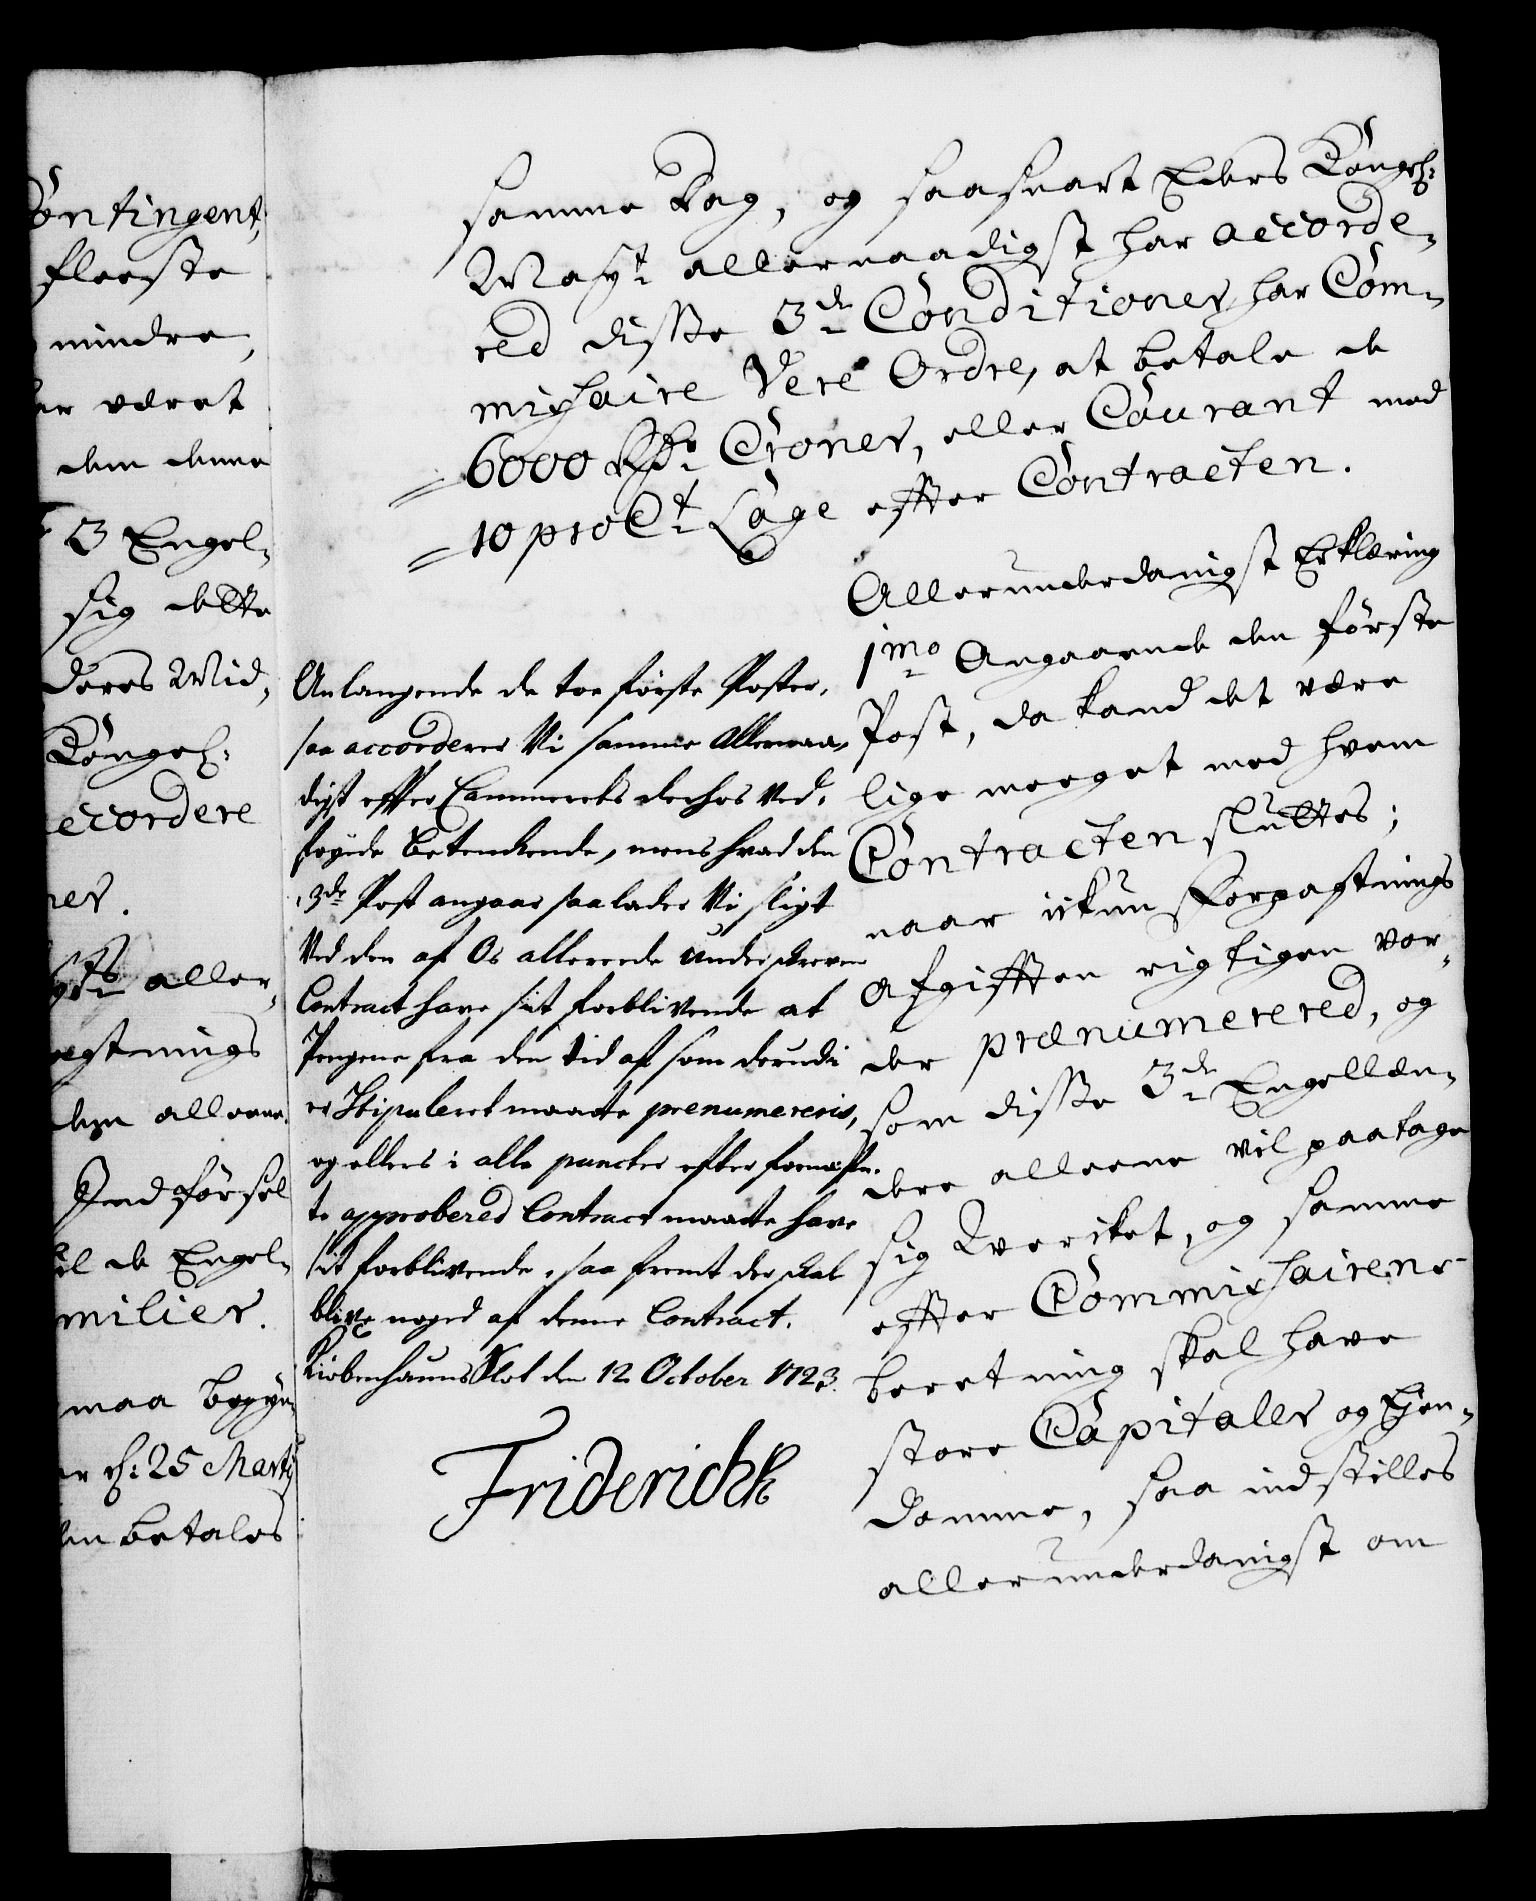 Contingent,
fleeste
mindre,
er været
dem denne
3 Engel-
sig dette
deres Mid-
Kongel:
ccordere
ner.
aller-
pagtnings
dem alleene
Indførsel
til de Engel-
milier.
maa begyn-
d: 25 Martij
betales
samme Dag, og saasnart Eders Kongel:
Mayt allernaadigst har accorde-
red disse 3de Conditioner, har Com-
missaire Vere Ordre, at betale de
6000 Rdr Croner, eller Courant med
10 pro Ct Lage efter Contracten.
Allerunderdanigst Erklæring
1mo Angaaende den første
Post, da kand det være
lige meeget med hvem
Contracten sluttes;
naar ickun Forpagtnings
Afgifften rigtigen vor-
der prænumerered, og
som disse 3de Engellæn-
dere alleene vil paatage
sig Værcket, og samme
effter Commissairens
beretning skal have
store Capitaller og Ejen-
domme, saa indstilles
allerunderdanigst om
Anlangende de toe første Poster,
saa accorderer Vi samme Allernaa-
digst efter Cammerets derhos Ved-
føyede Betenckende, mens hvad den
3de Post angaar saa lader Vi sligt
Ved den af Os allerede underschreven
Contract have sit forblivende at
Pengene fra den tid af som derudi
er Stipuleret maatte prenumereris,
og ellers i alle puncter efter formeldte
te approbered Contract maatte have
sit forblivende, saa fremt der skal
blive noged af denne Contract.
Kiøbenhauns Slot den 12 October 1723.
Friderich R